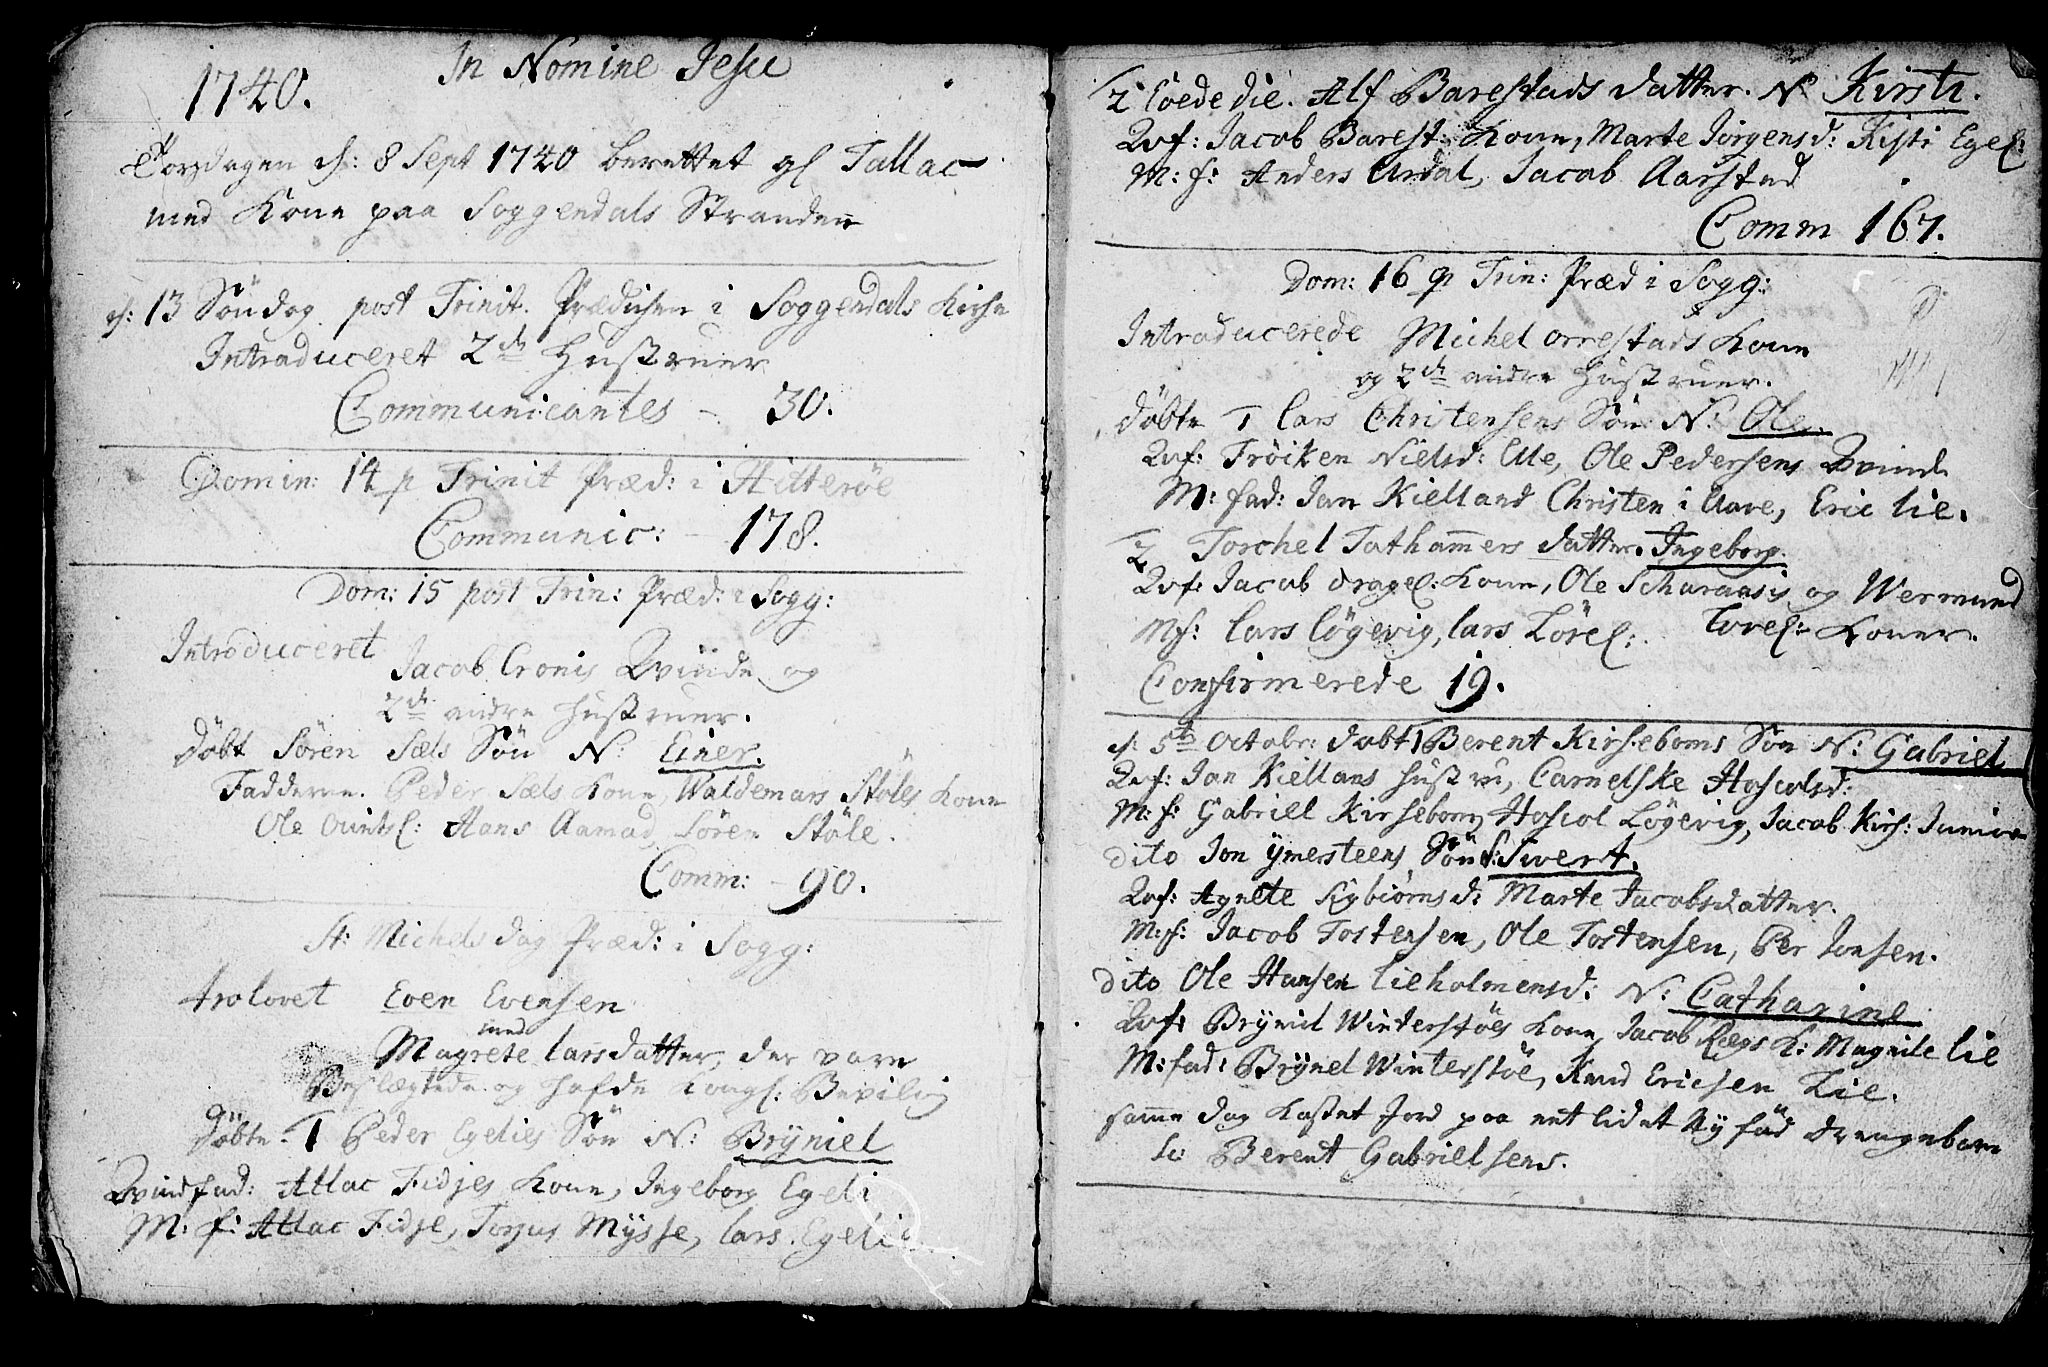 1740. In Nomine Jesu
Torsdagen d: 8 Sept 1740 berettet gl Tallac
med Kone paa Soggendals Stranden
d: 13 Söndag post Trinit. Prædichen i Soggendals Kirche
Introduceret 2de Hustruer
Communicantes - 30.
Domin: 14 p Trinit Præd: i Hitteröe
Communic: - 178.
Dom: 15 post Trin: Præd: i Sogg:
Introduceret
Jacob Cronis Qvinde og
2de andre Hustruer.
Döbt Sören Sæls Sön N: Einer.
Fadderne. Peder Sæls Kone, Waldemars Stöles Kone
Ole Hans Aamad, Sören Stöle.
Comm: - 90.
St: Michels dag Præd: i Sogg:
trolovet Even Evensen
med
Magrete Larsdatter, der vare
Beslægtede og hafde Kongl: Bevilig
Döbte. 1 Peder Egelies Sön N: Brÿniel
Qvindfad: Atlac Fidjes Kone, Ingeborg Egeli
M: f: Atlac Fidje, Torjus Mÿsse, Lars Egelie
2 eode die. Alf Barestads datter. N Kirsti.
Qvf: Jacob Barest: Kone, Marte Jörgensd: Kisti Egel:
M: f: Anders Urdal, Jacob Aarstad
Comm 167.
Dom: 16 p Trin: Præd i Sogg:
Introducerede Michel Orrestads Kone
og 2de andre Hustruer.
Döbte 1 Lars Christensens Sön N: Ole.
Qvf: Fröiken Nielsd: Ole Pedersens Qvinde
M: fad: Jan Kielland Christen i Aare, Eric Lie.
2 Torchel Tathammers datter. Ingeborg.
Qvf: Jacob dragel: Kone, Ole Scharaasis og Wermund
Lovel: Koner.
Mf: Lars Lögevig, Lars Lövel:
Confirmerede 19.
d: 5te Octobr: döbt 1 Berent Kirseboms Sön N: Gabriel
Qvf: Jan Kiellans Hustru, Carnelske Hoscolsd:
M: f: Gabriel Kirsebom, Hoscol Lögevig, Jacob Kirs: Junior
dito Jon Ÿmesteens Sön Sivert.
Qvf: Agnete Marte Jacobsdatter.
M: f: Jacob Tostensen, Ole Tostensen, Per Jonsen.
dito Ole Hansen Lieholmensd: N: Catharine
Qvf: Brÿnil Winterstöes Kone, Jacob Rægs K: Magnile Lie
M: fad: Brÿnel Winterstöe, Knud Ericsen Lie.
samme dag Kastet Jord paa eet lidet Nÿ föd drengebarn
sc: Berent Gabrielsens.